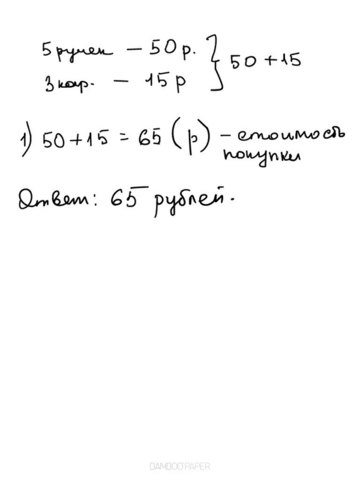 5 ручек — 50 р. } 50 + 15
3 кар. — 15 р
1) 50 + 15 = 65 (р) – стоимость
покупки
Ответ: 65 рублей.
DAMODOPAPER